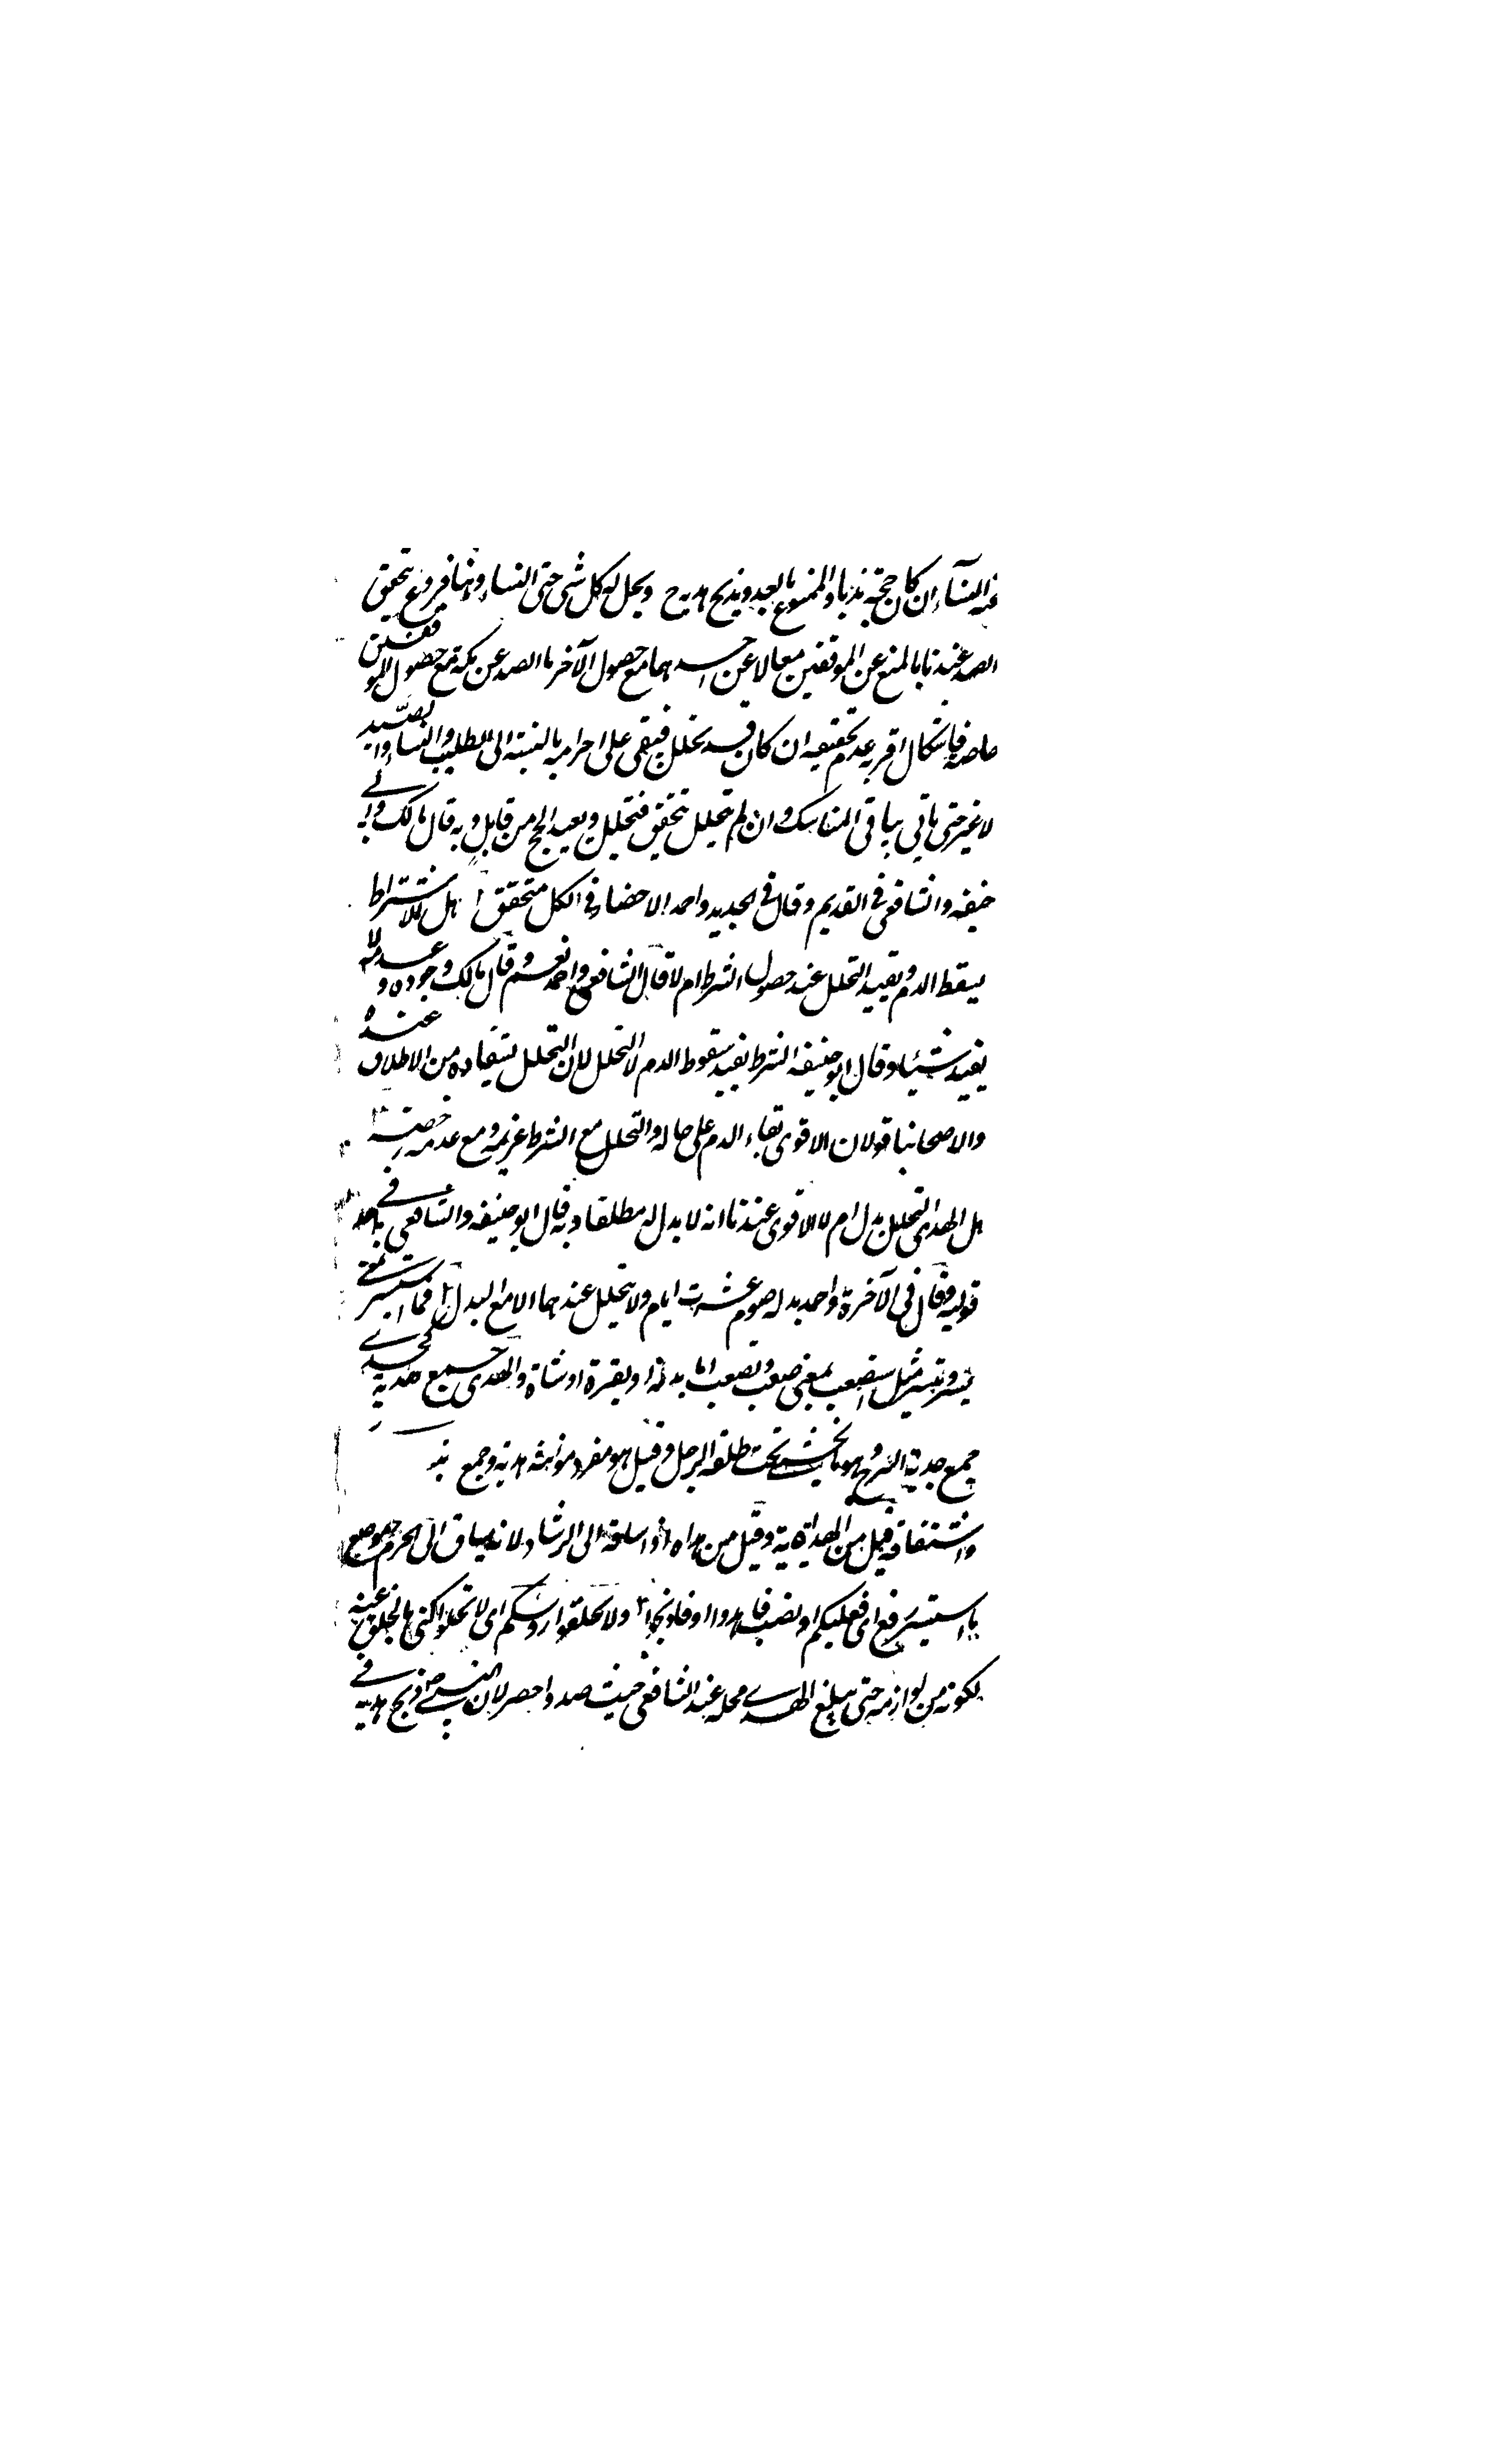 عنه النسآء ان كان حجة ندبا والممنوع بالعدو يذبح هديه ح ويحل له كل شى حتى النساء وهنا فروع تحقق
الصد عندنا بالمنع عن الموقفين معا لا عن احدهما مع حصول الآخر اما الصد عن مكة مع حصول الموقفين
خاصة فاشكال اقربه عدم تحققه ان كان قد تحلل فيبقى على احرامه بالنسبة الى الطيب والنساء والصيد
لا غير حتى ياتي بباقي المناسك وان لم يتحلل تحقق فتحلل ويعيد الحج من قابل وبه قال مالك وابى
حنيفه والشافعى فى القديم وقال فى الجديد واحمد الاحصار فى الكل متحقق ا هل للاشتراط
يسقط الدم ويفيد التحلل عند حصول الشرط ام لا قال الشافعى واحمد نعم وقال مالك وجوده وعدمه لا
يفيد شيئا وقال ابو حنيفه الشرط يفيد سقوط الدم لا التحلل لان التحلل يستفاده من الاطلاق عنده
والاصحابنا قولان الاقوى بقاء الدم على حاله والتحلل مع الشرط عزيمه ومع عدمه رخصة
هل لهدى التحلل بدل ام لا الاقوى عندنا انه لا بدل له مطلقا وبه قال ابو حنيفه والشافعى فى احد
قوليه وقال فى الآخرة واحمد بدله صوم عشرت ايام ولا يتحلل عندهما الا مع البدل فما استيسر
يسر وتيسر مثل استصعب بمعنى صعب وتصعب اما بدنة او بقرة او شاة والهدى جمع هدية كجدى
جمع جدية السرج وهو ما يحشى تحت ظلفة الرحل وقيل هو مفرد مؤنثه هدية وجمع
واشتقاقه قيل من الهداية وقيل من هداه اذا سلقه الى الرشاد لانه يساق الى الحرم وموضع
ما استيسر رفع اى فعليكم او نصب فاهدوا او فاذبحوا ولا تحلقوا رؤسكم اى لا تحلوا كنى بالحلق عنه
لكونه من لوازمه حتى يبلغ الهدى محله عند الشافعى حيث صد واحصر لان النبى ص ذبح هديه فى